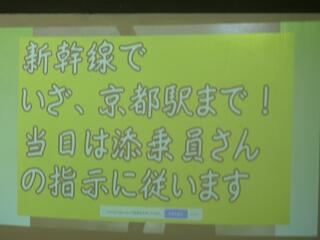 新幹線で
いざ、京都駅まで！
当日は添乗員さん
の指示に従います